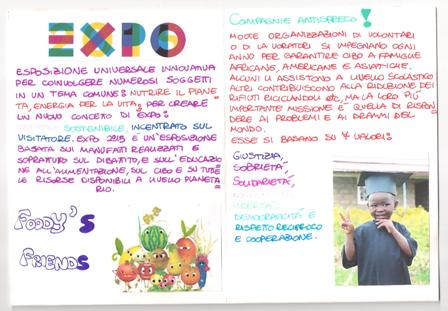 EXPO
ESPOSIZIONE UNIVERSALE INNOVATIVA
PER COINVOLGERE NUMEROSI SOGGETTI
IN UN TEMA COMUNE: NUTRIRE IL PIANE
TA, ENERGIA PER LA VITA, PER CREARE
UN NUOVO CONCETTO DI EXPO:
SOSTENIBILE, INCENTRATO SUL
VISITATORE. EXPO 2015 È UN'ESPOSIZIONE
BASATA SUI MANUFATTI REALIZZATI E
SOPRATTUTTO SUL DIBATTITO, E SULL'EDUCAZIO
NE ALL'ALIMENTAZIONE, SUL CIBO E SU TUTTE
LE RISORSE DISPONIBILI A LIVELLO PLANETA
RIO.
FOODY'S
FRIENDS
COMPAGNIE ANTISPRECO!
MOLTE ORGANIZZAZIONI DI VOLONTARI
O DI LAVORATORI SI IMPEGNANO OGNI
ANNO PER GARANTIRE CIBO A FAMIGLIE
AFRICANE, AMERICANE E ASIATICHE.
ALCUNI LI ASSISTONO A LIVELLO SCOLASTICO
ALTRI CONTRIBUISCONO ALLA RIDUZIONE DEI
RIFIUTI RICICLANDOLI etc, MA LA LORO PIÙ
IMPORTANTE MISSIONE È QUELLA DI RISPON
DERE AI PROBLEMI E AI DRAMMI DEL
MONDO.
ESSE SI BASANO SU 7 VALORI:
GIUSTIZIA,
SOBRIETÀ,
SOLIDARIETÀ,
LIBERTÀ,
DEMOCRATICITÀ E
RISPETTO RECIPROCO
E COOPERAZIONE.